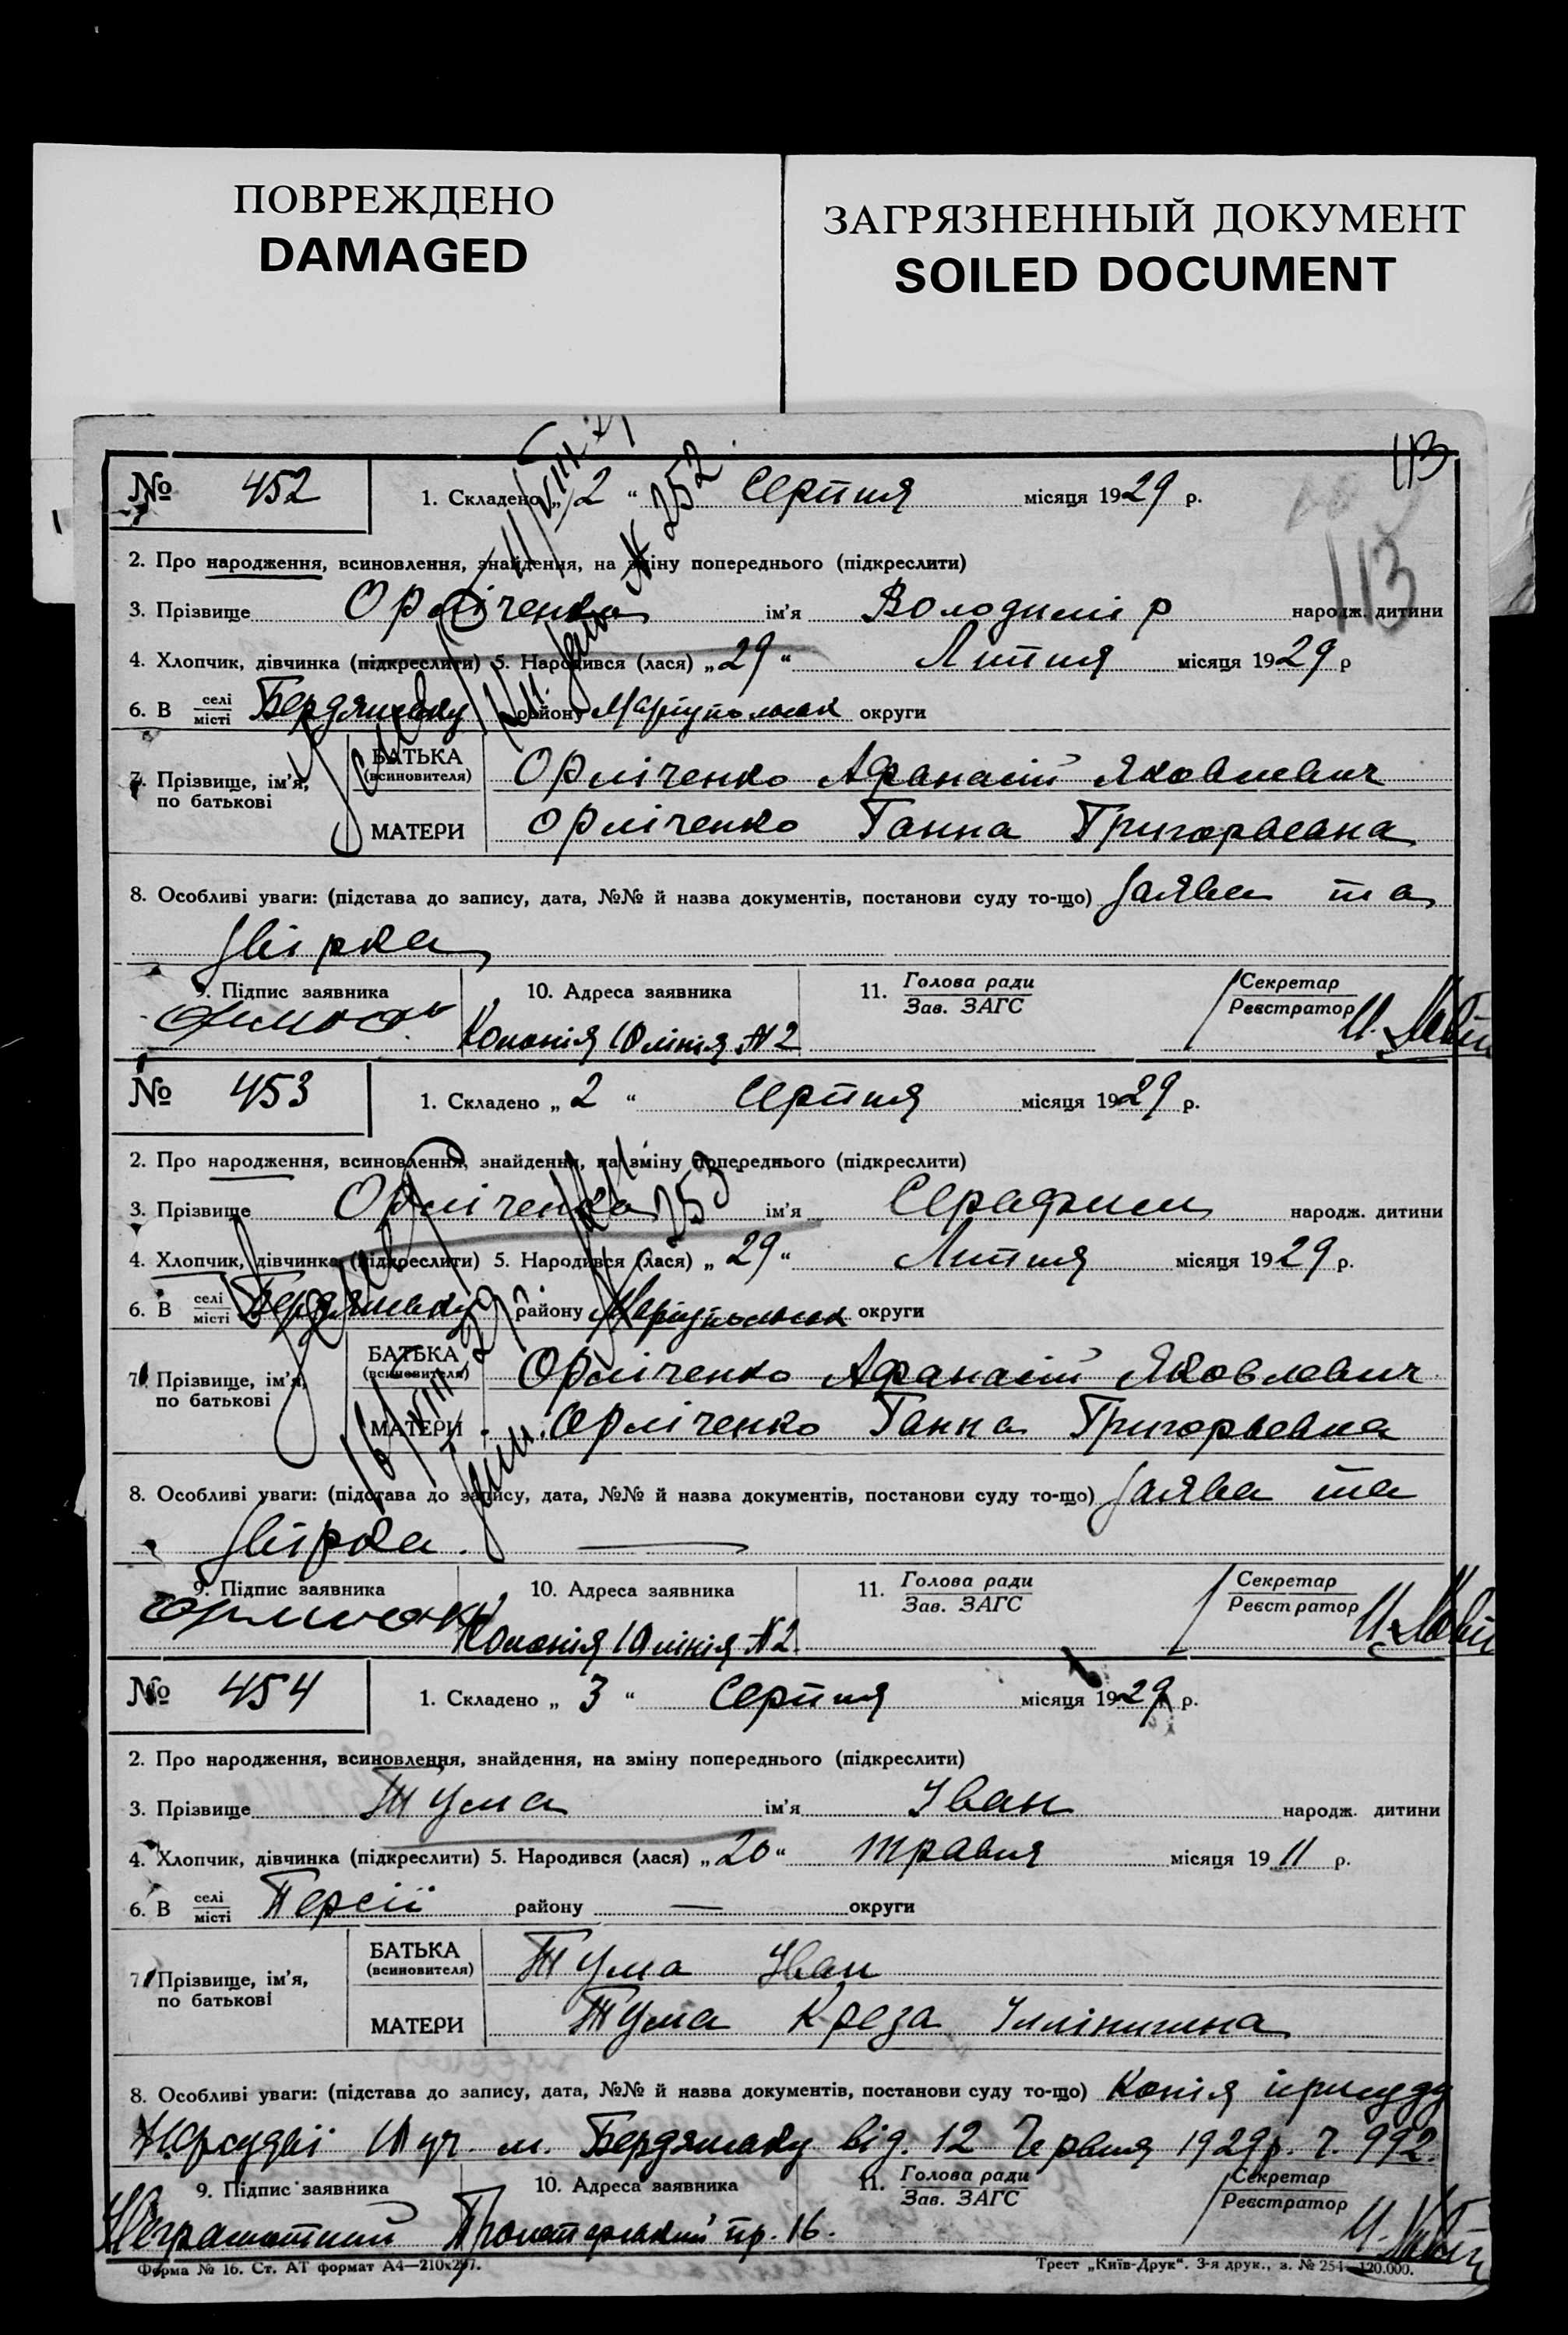 ПОВРЕЖДЕНО
DAMAGED
ЗАГРЯЗНЕННЫЙ ДОКУМЕНТ
SOILED DOCUMENT
113
113
№ 452
1. Складено „ 2 “ Серпня місяця 1929 р.
2. Про народження, всиновлення, знайдення, на зміну попереднього (підкреслити)
3. Прізвище Орліченко ім'я Володимір народж. дитини
4. Хлопчик, дівчинка (підкреслити) 5. Народився (лася) „ 29 “ Липня місяця 1929 р
6. В селі місті Бердянську району Маріупольск округи
7. Прізвище, ім'я, по батькові
БАТЬКА (всиновителя) Орліченко Афанасій Яковлевич
МАТЕРИ Орліченко Ганна Григорьевна
8. Особливі уваги: (підстава до запису, дата, №№ й назва документів, постанови суду то-що) Заява та
звірка
9. Підпис заявника 10. Адреса заявника 11. Голова ради Зав. ЗАГС Секретар Реєстратор
Колонія 10 лінія № 2
№ 453
1. Складено „ 2 “ Серпня місяця 1929 р.
2. Про народження, всиновлення, знайдення, на зміну попереднього (підкреслити)
3. Прізвище Орліченко ім'я Серафим народж. дитини
4. Хлопчик, дівчинка (підкреслити) 5. Народився (лася) „ 29 “ Липня місяця 1929 р.
6. В селі місті Бердянську району Маріупольск округи
7. Прізвище, ім'я, по батькові
БАТЬКА (всиновителя) Орліченко Афанасій Яковлевич
МАТЕРИ Орліченко Ганна Григорьевна
8. Особливі уваги: (підстава до запису, дата, №№ й назва документів, постанови суду то-що) Заява та
звірка.
9. Підпис заявника 10. Адреса заявника 11. Голова ради Зав. ЗАГС Секретар Реєстратор
Колонія 10 лінія № 2
№ 454
1. Складено „ 3 “ Серпня місяця 1929 р.
2. Про народження, всиновлення, знайдення, на зміну попереднього (підкреслити)
3. Прізвище Тума ім'я Іван народж. дитини
4. Хлопчик, дівчинка (підкреслити) 5. Народився (лася) „ 20 “ травня місяця 1911 р.
6. В селі місті Персії району — округи
7. Прізвище, ім'я, по батькові
БАТЬКА (всиновителя) Тума Іван
МАТЕРИ Тума Креза
8. Особливі уваги: (підстава до запису, дата, №№ й назва документів, постанови суду то-що) Копія присуду
Нарсудді 10 уч. м. Бердянську від. 12 Червня 1929 р. ч. 992.
9. Підпис заявника 10. Адреса заявника 11. Голова ради Зав. ЗАГС Секретар Реєстратор
Неграмотний Пролетарський пр. 16.
Форма № 16. Ст. АТ формат А4—210х297.
Трест „Київ-Друк“. 3-я друк., з. № 254—120.000.